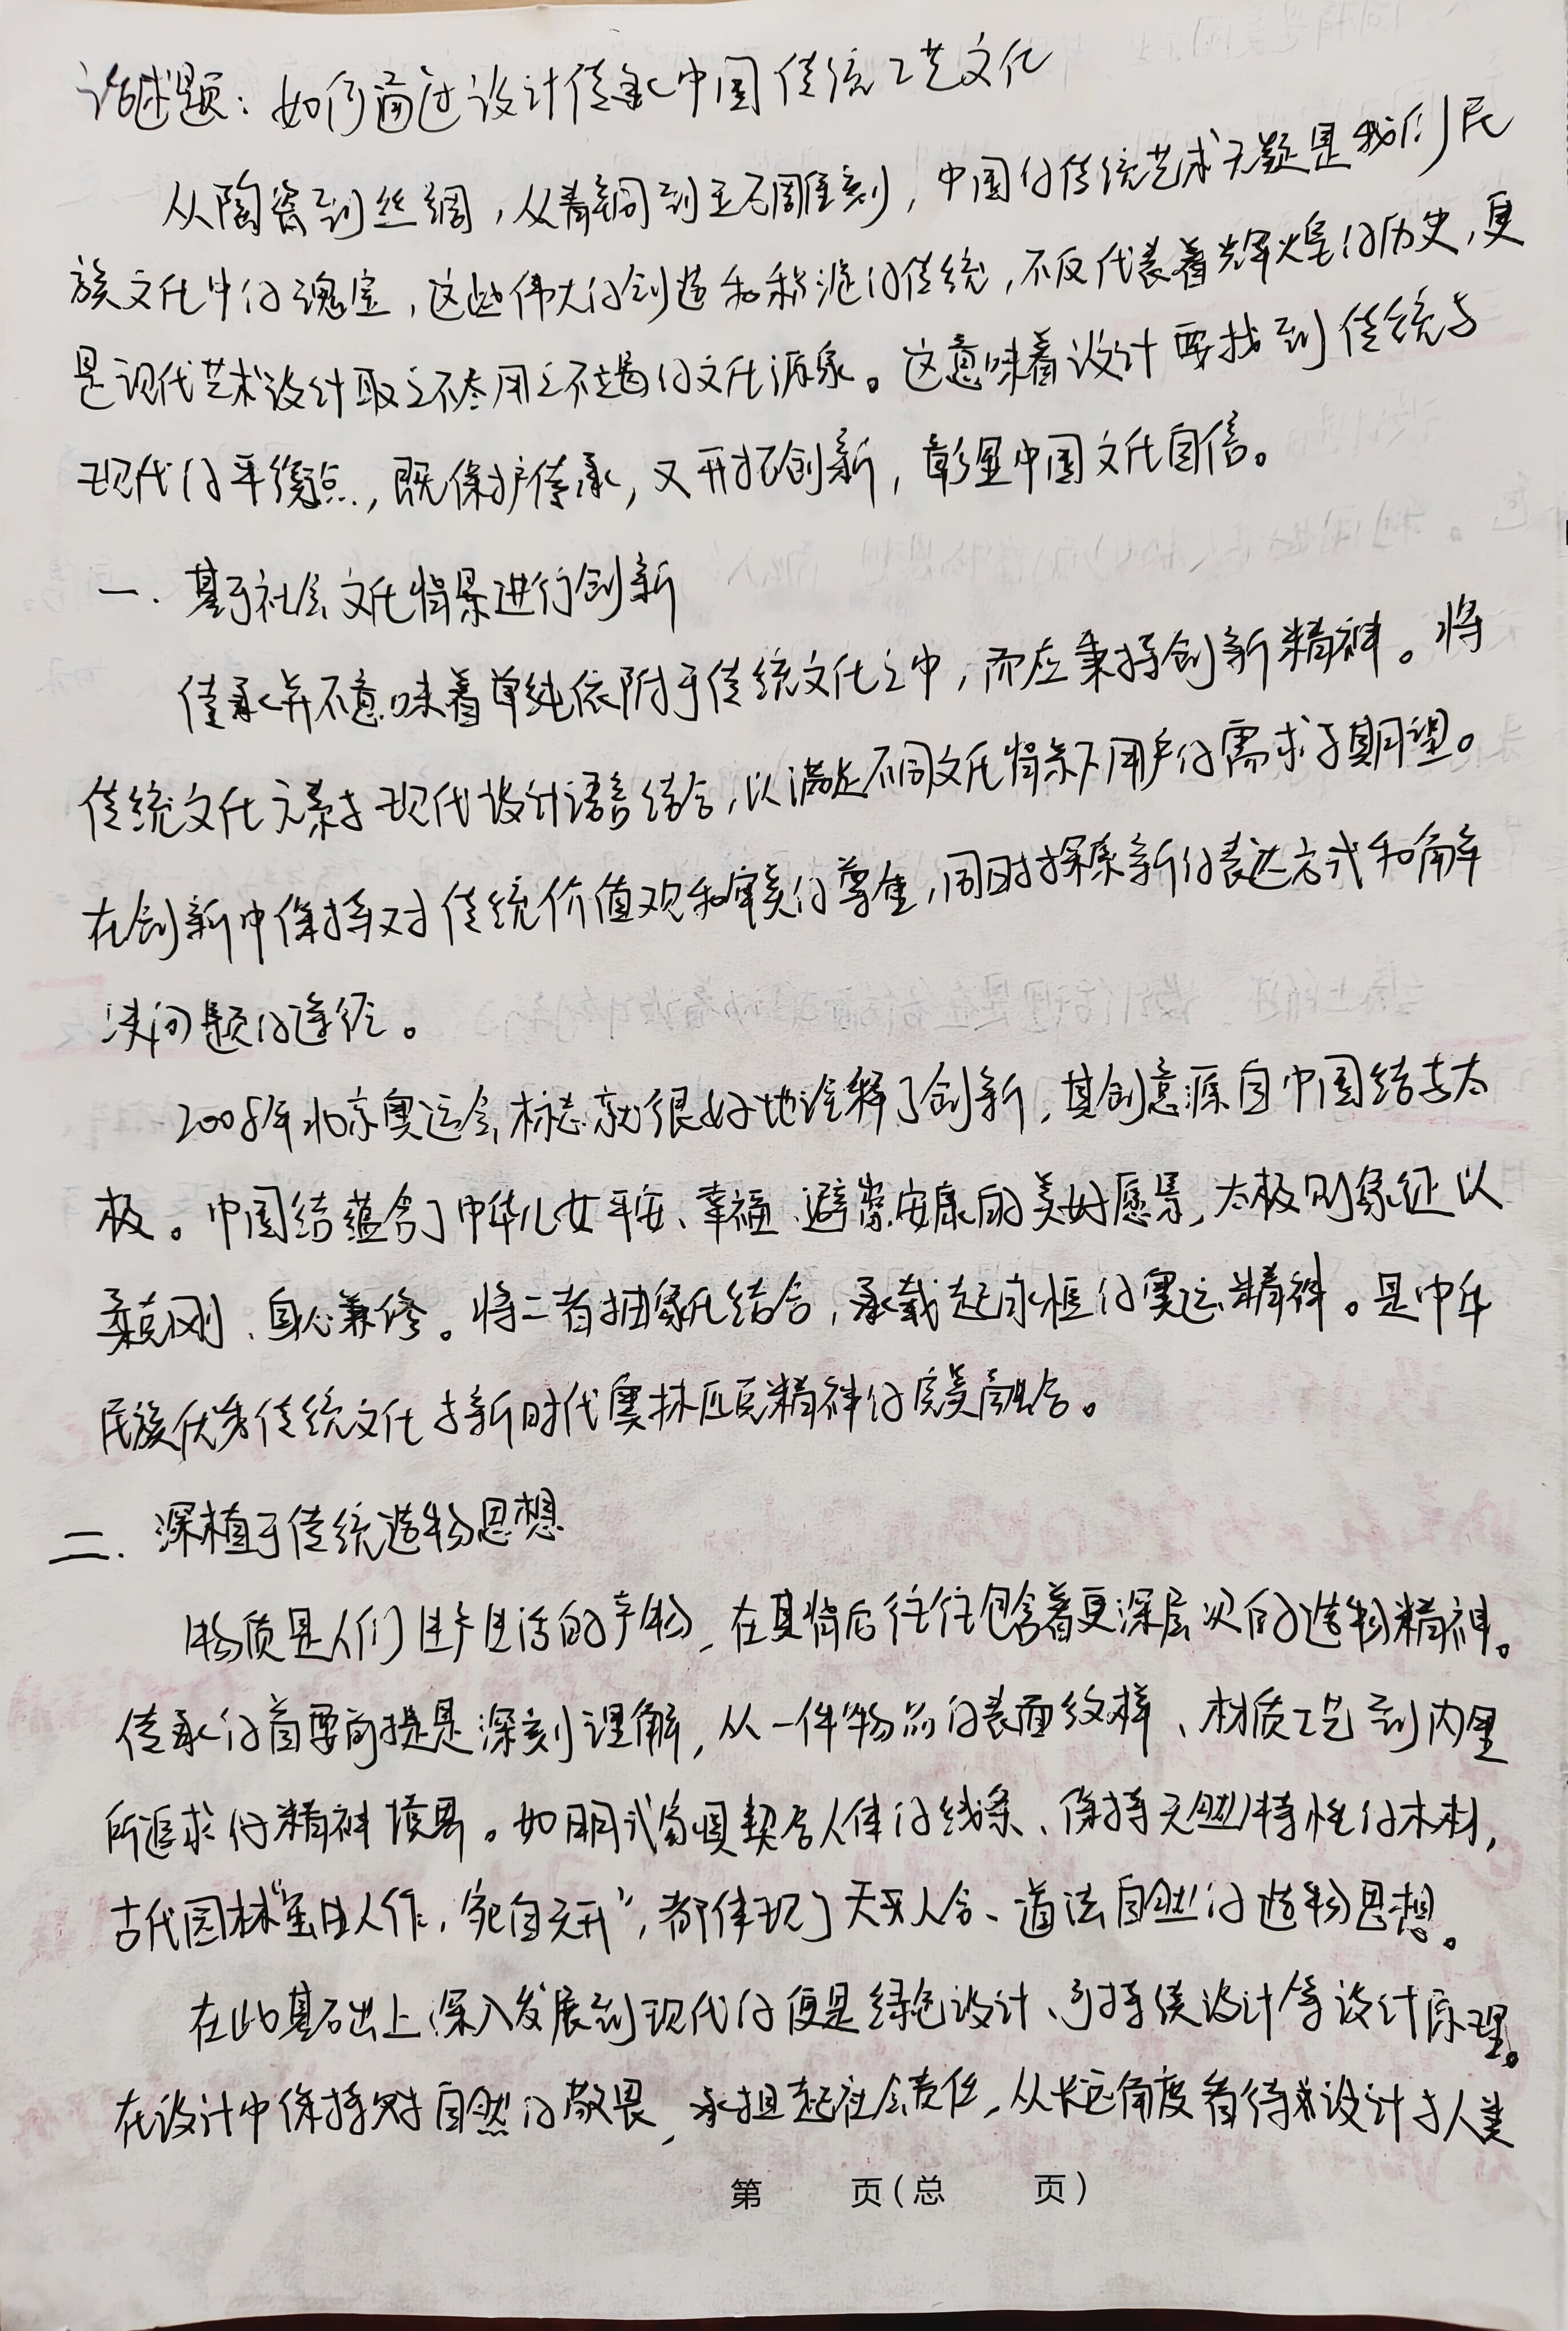 论述题：如何通过设计传承中国传统工艺文化
从陶瓷到丝绸，从青铜到玉石雕刻，中国的传统艺术无疑是我们民
族文化中的瑰宝，这些伟大的创造和的传统，不仅代表着辉煌的历史，更
是现代艺术设计取之不尽用之不竭的文化源泉。这意味着设计要找到传统与
现代的平衡点，既保护传承，又开拓创新，彰显中国文化自信。
一．基于社会文化情景进行创新
传承并不意味着单纯依附于传统文化之中，而应秉持创新精神。将
传统文化元素与现代设计语言结合，以满足不同文化情景下用户的需求与期望。
在创新中保持对传统价值观和审美的尊重，同时探索新的表达方式和解
决问题的途径。
2008年北京奥运会标志就很好地诠释了创新，其创意源自中国结与太
极。中国结蕴含了中华儿女平安、幸福、避祟安康的美好愿景，太极则象征以
柔克刚、身心兼修。将二者抽象化结合，承载起永恒的奥运精神。是中华
民族优秀传统文化与新时代奥林匹克精神的完美融合。
二．深植于传统造物思想
物质是人们生产生活的产物，在其背后往往包含着更深层次的造物精神。
传承的首要前提是深刻理解，从一件物品的表面纹样、材质工艺到内里
所追求的精神境界。如明式家具契合人体的线条、保持天然特性的木材，
古代园林“虽由人作，宛自天开”，都体现了天人合、道法自然的造物思想。
在此基础上深入发展到现代的便是绿色设计、可持续设计等设计原理。
在设计中保持对自然的敬畏，承担起社会责任，从长远角度看待设计与人类
第 页（总 页）